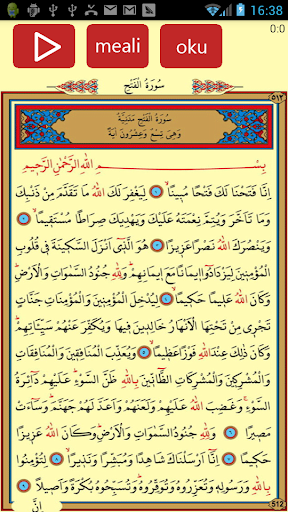 16:38
meali oku
0:0
سُورَةُ الْفَتْحِ
٥١٢
سُورَةُ الْفَتْحِ مَدَنِيَّةٌ
وَهِيَ تِسْعٌ وَعِشْرُونَ اٰيَةً
بِسْمِ اللّٰهِ الرَّحْمٰنِ الرَّحٖيمِ
اِنَّا فَتَحْنَا لَكَ فَتْحًا مُبٖينًا ١ لِيَغْفِرَ لَكَ اللّٰهُ مَا تَقَدَّمَ مِنْ ذَنْبِكَ
وَمَا تَاَخَّرَ وَيُتِمَّ نِعْمَتَهُ عَلَيْكَ وَيَهْدِيَكَ صِرَاطًا مُسْتَقٖيمًا ٢
وَيَنْصُرَكَ اللّٰهُ نَصْرًا عَزٖيزًا ٣ هُوَ الَّذٖٓي اَنْزَلَ السَّكٖينَةَ فٖي قُلُوبِ
الْمُؤْمِنٖينَ لِيَزْدَادُٓوا اٖيمَانًا مَعَ اٖيمَانِهِمْ وَلِلّٰهِ جُنُودُ السَّمٰوَاتِ وَالْاَرْضِ
وَكَانَ اللّٰهُ عَلٖيمًا حَكٖيمًا ٤ لِيُدْخِلَ الْمُؤْمِنٖينَ وَالْمُؤْمِنَاتِ جَنَّاتٍ
تَجْرٖي مِنْ تَحْتِهَا الْاَنْهَارُ خَالِدٖينَ فٖيهَا وَيُكَفِّرَ عَنْهُمْ سَيِّـَٔاتِهِمْ
وَكَانَ ذٰلِكَ عِنْدَ اللّٰهِ فَوْزًا عَظٖيمًا ٥ وَيُعَذِّبَ الْمُنَافِقٖينَ وَالْمُنَافِقَاتِ
وَالْمُشْرِكٖينَ وَالْمُشْرِكَاتِ الظَّٓانّٖينَ بِاللّٰهِ ظَنَّ السَّوْءِ عَلَيْهِمْ دَٓائِرَةُ
السَّوْءِ وَغَضِبَ اللّٰهُ عَلَيْهِمْ وَلَعَنَهُمْ وَاَعَدَّ لَهُمْ جَهَنَّمَ وَسَٓاءَتْ
مَصٖيرًا ٦ وَلِلّٰهِ جُنُودُ السَّمٰوَاتِ وَالْاَرْضِ وَكَانَ اللّٰهُ عَزٖيزًا
حَكٖيمًا ٧ اِنَّٓا اَرْسَلْنَاكَ شَاهِدًا وَمُبَشِّرًا وَنَذٖيرًا ٨ لِتُؤْمِنُوا
بِاللّٰهِ وَرَسُولِهٖ وَتُعَزِّرُوهُ وَتُوَقِّرُوهُ وَتُسَبِّحُوهُ بُكْرَةً وَاَصٖيلًا ٩
512
اِنَّ